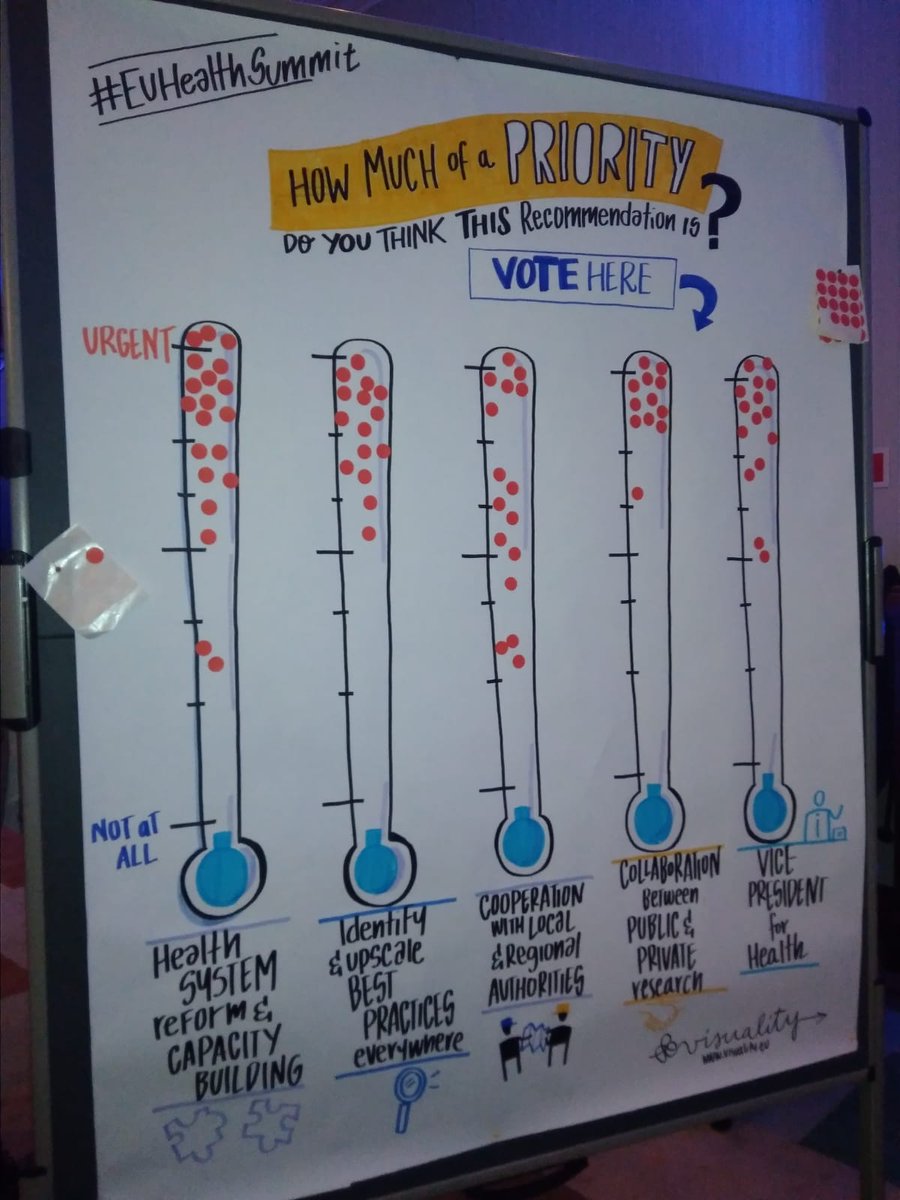 #EUHealthSummit
HOW MUCH of a PRIORITY
DO YOU THINK THIS Recommendation is?
VOTE HERE
URGENT
NOT at
ALL
Health
SYSTEM
reform &
CAPACITY
BUILDING
Identify
& upscale
BEST
PRACTICES
everywhere
COOPERATION
WITH LOCAL
& Regional
AUTHORITIES
COLLABORATION
Between
PUBLIC &
PRIVATE
research
VICE
PRESIDENT
for
Health
i
visuality
www.visuality.eu